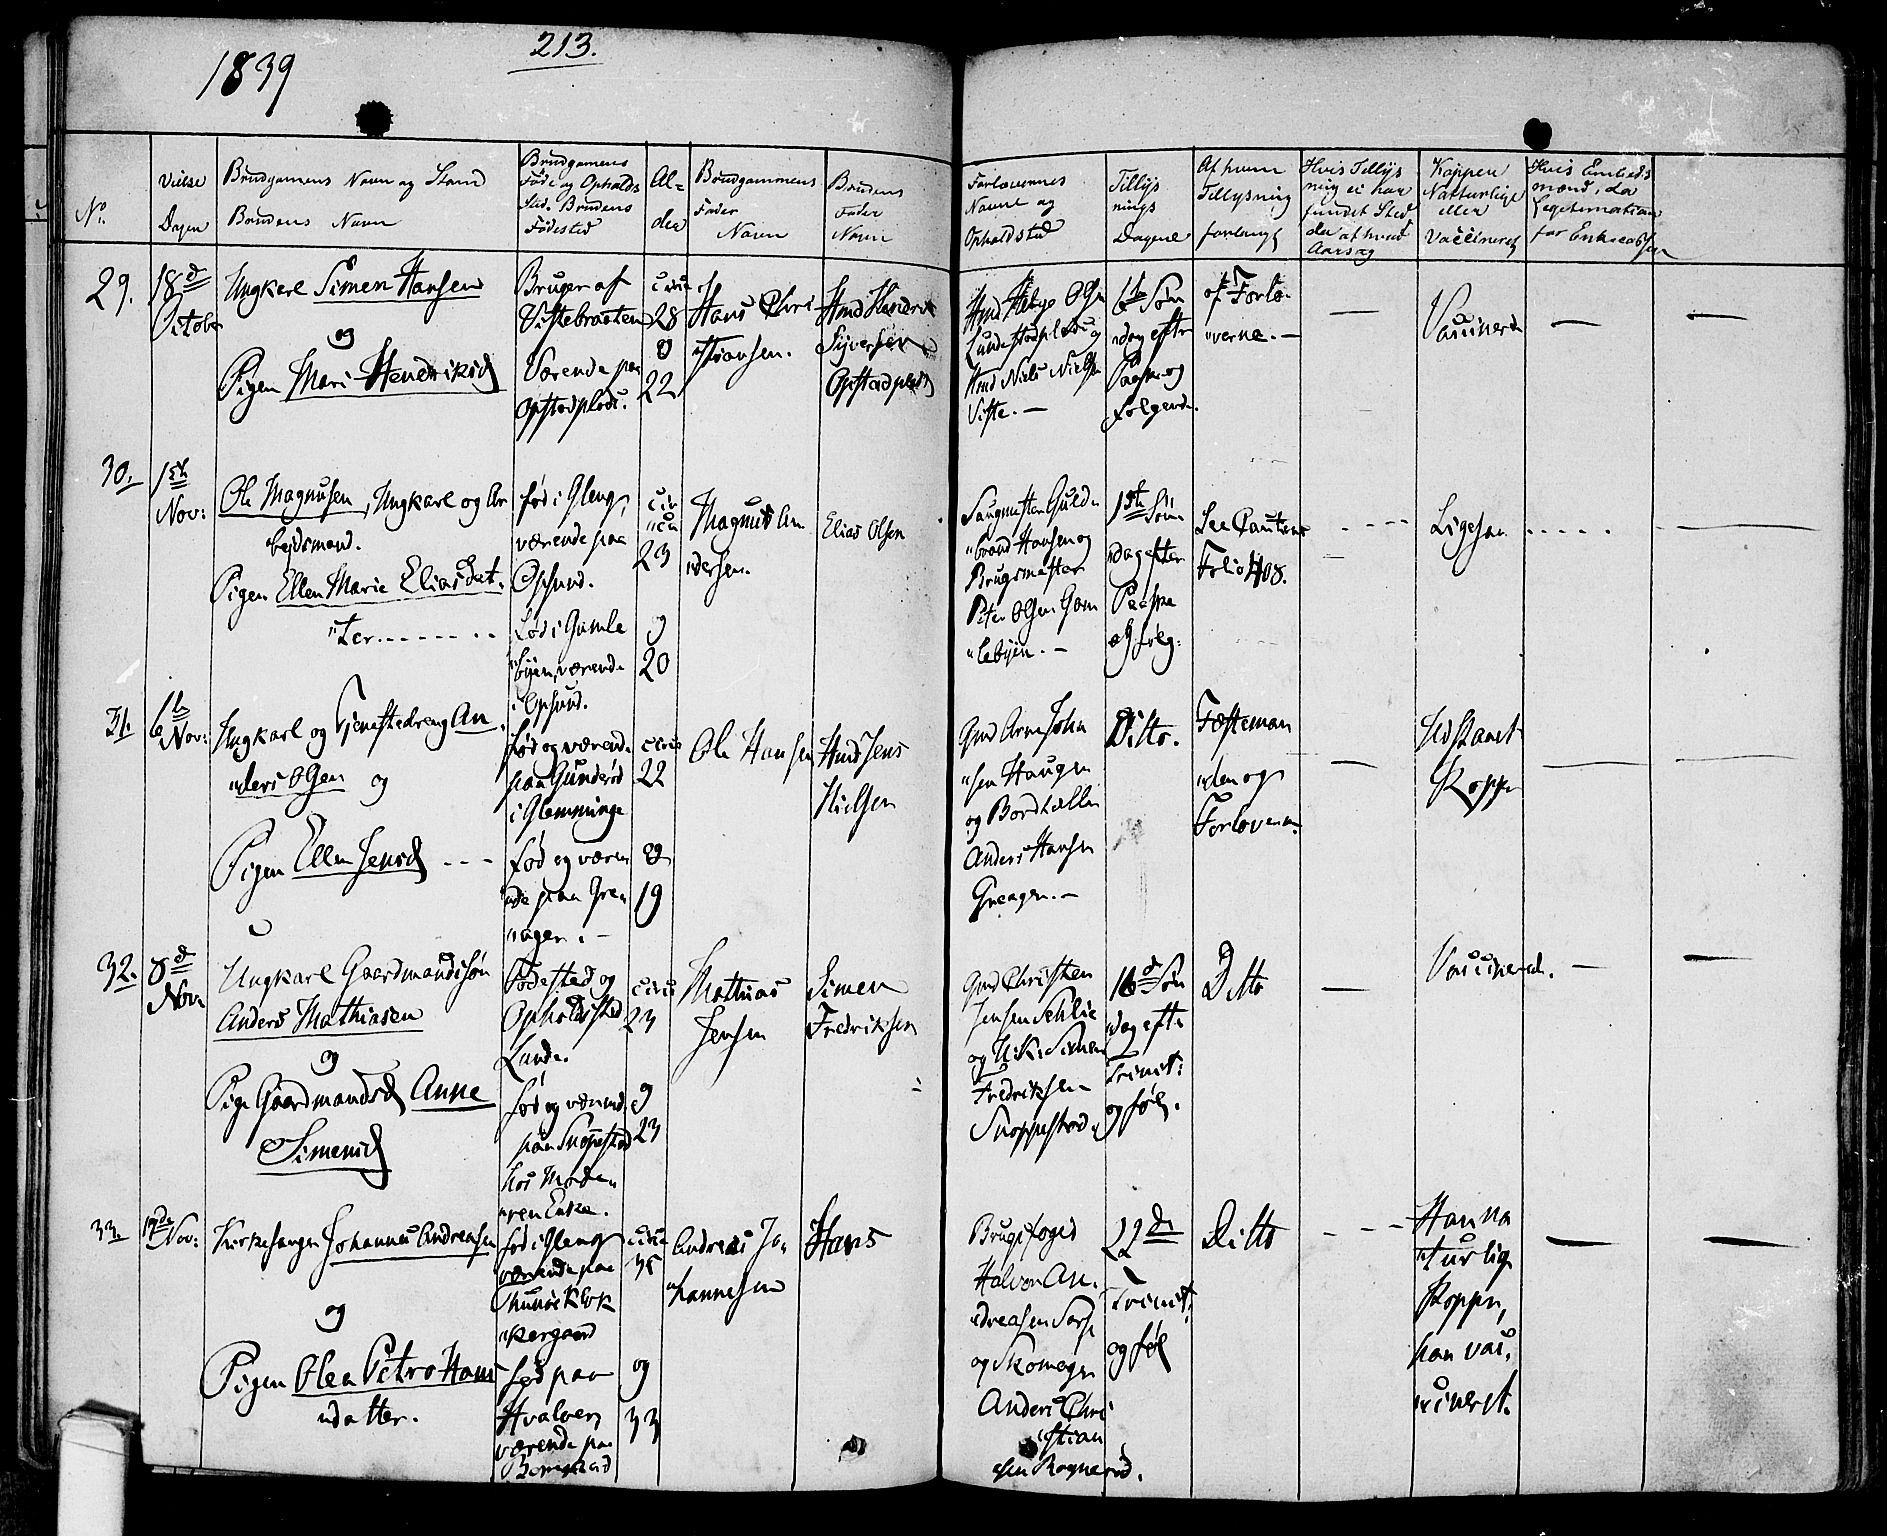 1839
213.
No.
Vielse Dagen
Brudgamens Navn og Stand
Brudens Navn
Brudgamens
Føde og Opholds
Sted. Brudens
Fødested
Al=
der
Brudgammens
Fader
Navn
Brudens
Fader
Navn
Forlovernes
Navne og
Opholdsted
Tillys
nings
Dagene
Af hvem
Tillysning
forlangt
Hvis Tillys
ning ei har
fundet Sted
da af hvad
Aarsag
Koppen
Natturlige
eller
Vaccineret
Hvis Embeds
mænd, da
Legitimation
for Enkecassen
29.
18d
October
Ungkarl Simen Hansen
og
Pigen Mari Hendriksd
Bruger af
Vistebraaten
Værende paa
Opstadplads.
circa
28
og
22
Hans Chri
"stiansen.
Hmd Hendrik
Syversen
Opstadplads
Hmd Helge Olsen
Lundestadplads og
Hmd Niels Nielsen
Viste. —
6te Søn
"dag efter
Paaske og
følgende.
af Forlo-
"verne. —
—
Vaccinerede
—
—
30.
1ste
Nov:
Ole Magnusen, Ungkarl og Ar
"beidsmand.
Pigen Ellen Marie Eliasdat-
"ter.......
født i Gleng,
værende paa
Opsund.
født i Gamle
"byen, værende
i Opsund.
cir
"ca
23
og
20
Magnus An
"dersen.
Elias Olsen
Saugmester Guld
"brand Hansen og
Brugsmester
Peter Olsen Gam
"lebyen. —
1ste Søn
"dag efter
Paaske
og følg:
See Cautions
Folio 408.
Ligesaa
31.
6te
Nov:
Ungkarl og Tjenestedreng An-
"ders Olsen og
Pigen Ellen Jensd ---
født og værende
paa Gunderød
i Glemminge
født og væren
"de paa Gre
"ager. —
circa
22
og
19
Ole Hansen
Hmd Jens
Nielsen
Gmd Arne Johan
"sen Haugen
og Bordtæller
Anders Hansen
Greager. —
Ditto.
Fæsteman
"den og
Forloverne
—
Udstaaet
Kopper
32.
8d
Nov:
Ungkarl Gaardmandssøn
Anders Mathiasen
og
Pige Gaardmandsd Anne
Simensd
Fødested og
Opholdsted
Lunde.
født og værende
paa Snoppestad
hos Moderen
"ren Enke.
circa
23
og
23
Mathias
Jensen
Simen
Fredriksen
Gmd Christen
Jensen Schlie
og U.K. Simen
Fredriksen
Snoppestad
16d Søn
"dag efter
Trinit:
og føl.
Ditto
—
Vaccinered.
—
—
33.
19de Nov:
Kirkesanger Johannes Andreasen
og
Pigen Olea Petro Hans
"datter.
født i Gleng
værende paa
Thunøe Klok
"kergaard
født paa
Hvaløer,
værende paa
circa
35
og
33
Andreas Jo-
"hannesen
Hans
Brugsfoged
Halvor An-
"dreasen Sarp
og Skomager
Anders Chri
"stian
"sen Rognerød.
22de
Trinit.
og føl
Ditto
Han na
"turlig
Kopper,
hun vac.
"cineret.
—
—